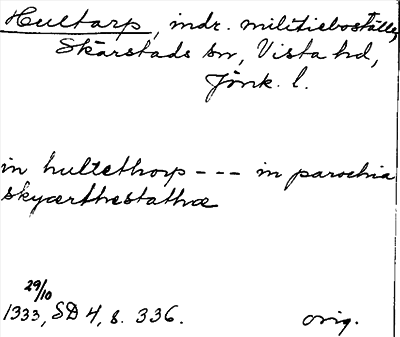 Hultarp, indr. militieboställe,
Skärstads sn, Vista hd,
Jönk. l.
in hultethorp --- in parochia
skyærthestathæ
29/10
1333, SD 4, s. 336. orig.